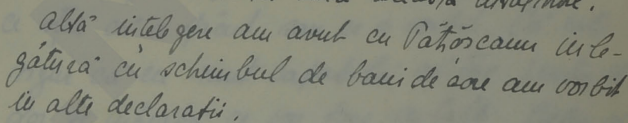 altă intelegere am avut cu Pătrășcanu în le-
gătură cu schimbul de bani de care am vorbit
in alte declaratii.